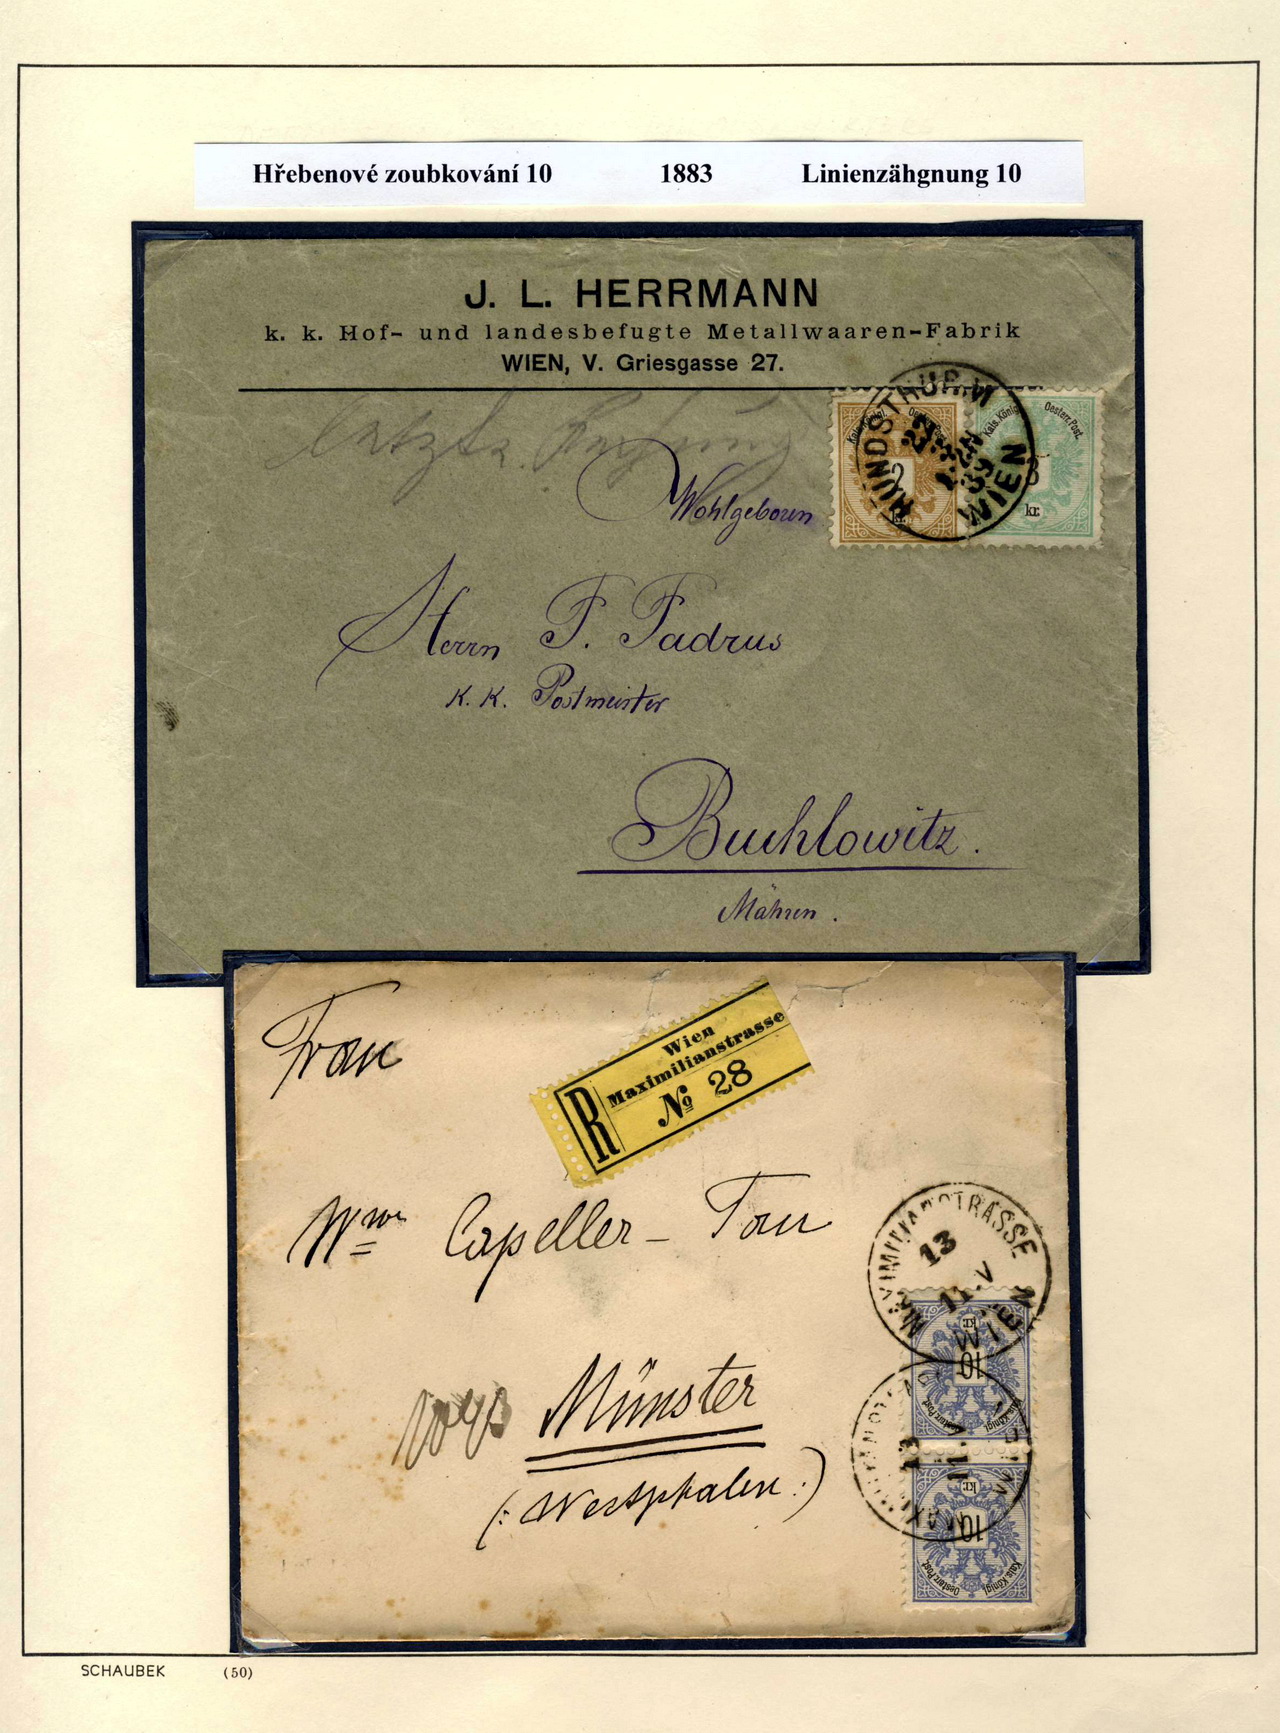 Hřebenové zoubkování 10 1883 Linienzähgnung 10
J. L. HERRMANN
k. k. Hof- und landesbefugte Metallwaaren-Fabrik
WIEN, V. Griesgasse 27.
HUNDSTHURM
WIEN
Kais. Königl. Oesterr. Post.
kr.
Wohlgeboren
Herrn F. Fadrus
K. K. Postmeister
Buchlowitz.
Mähren.
Frau
Wien
Maximilianstrasse
R
№ 28
Wwe Capeller - Tou
MAXIMILIANSTRASSE
13
11. V
WIEN
Münster
(: Westphalen :)
10
kr.
Kais. Königl. Oesterr. Post.
13
11. V
10
kr.
Kais. Königl. Oesterr. Post.
SCHAUBEK (50)